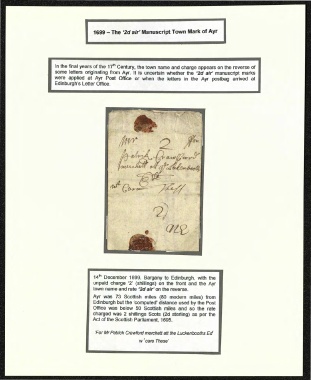 1699 – The '2d air' Manuscript Town Mark of Ayr
In the final years of the 17th Century, the town name and charge appears on the reverse of
some letters originating from Ayr. It is uncertain whether the '2d air' manuscript marks
were applied at Ayr Post Office or when the letters in the Ayr postbag arrived at
Edinburgh's Letter Office.
Mr 2
14th December 1699, Bargany to Edinburgh, with the
unpaid charge '2' (shillings) on the front and the Ayr
town name and rate '2d air' on the reverse.
Ayr was 73 Scottish miles (83 modern miles) from
Edinburgh but the 'computed' distance used by the Post
Office was below 50 Scottish miles and so the rate
charged was 2 shillings Scots (2d sterling) as per the
Act of the Scottish Parliament, 1695.
For Mr Patrick Crawford merchett att the Luckenbooths Ed
w 'care These'